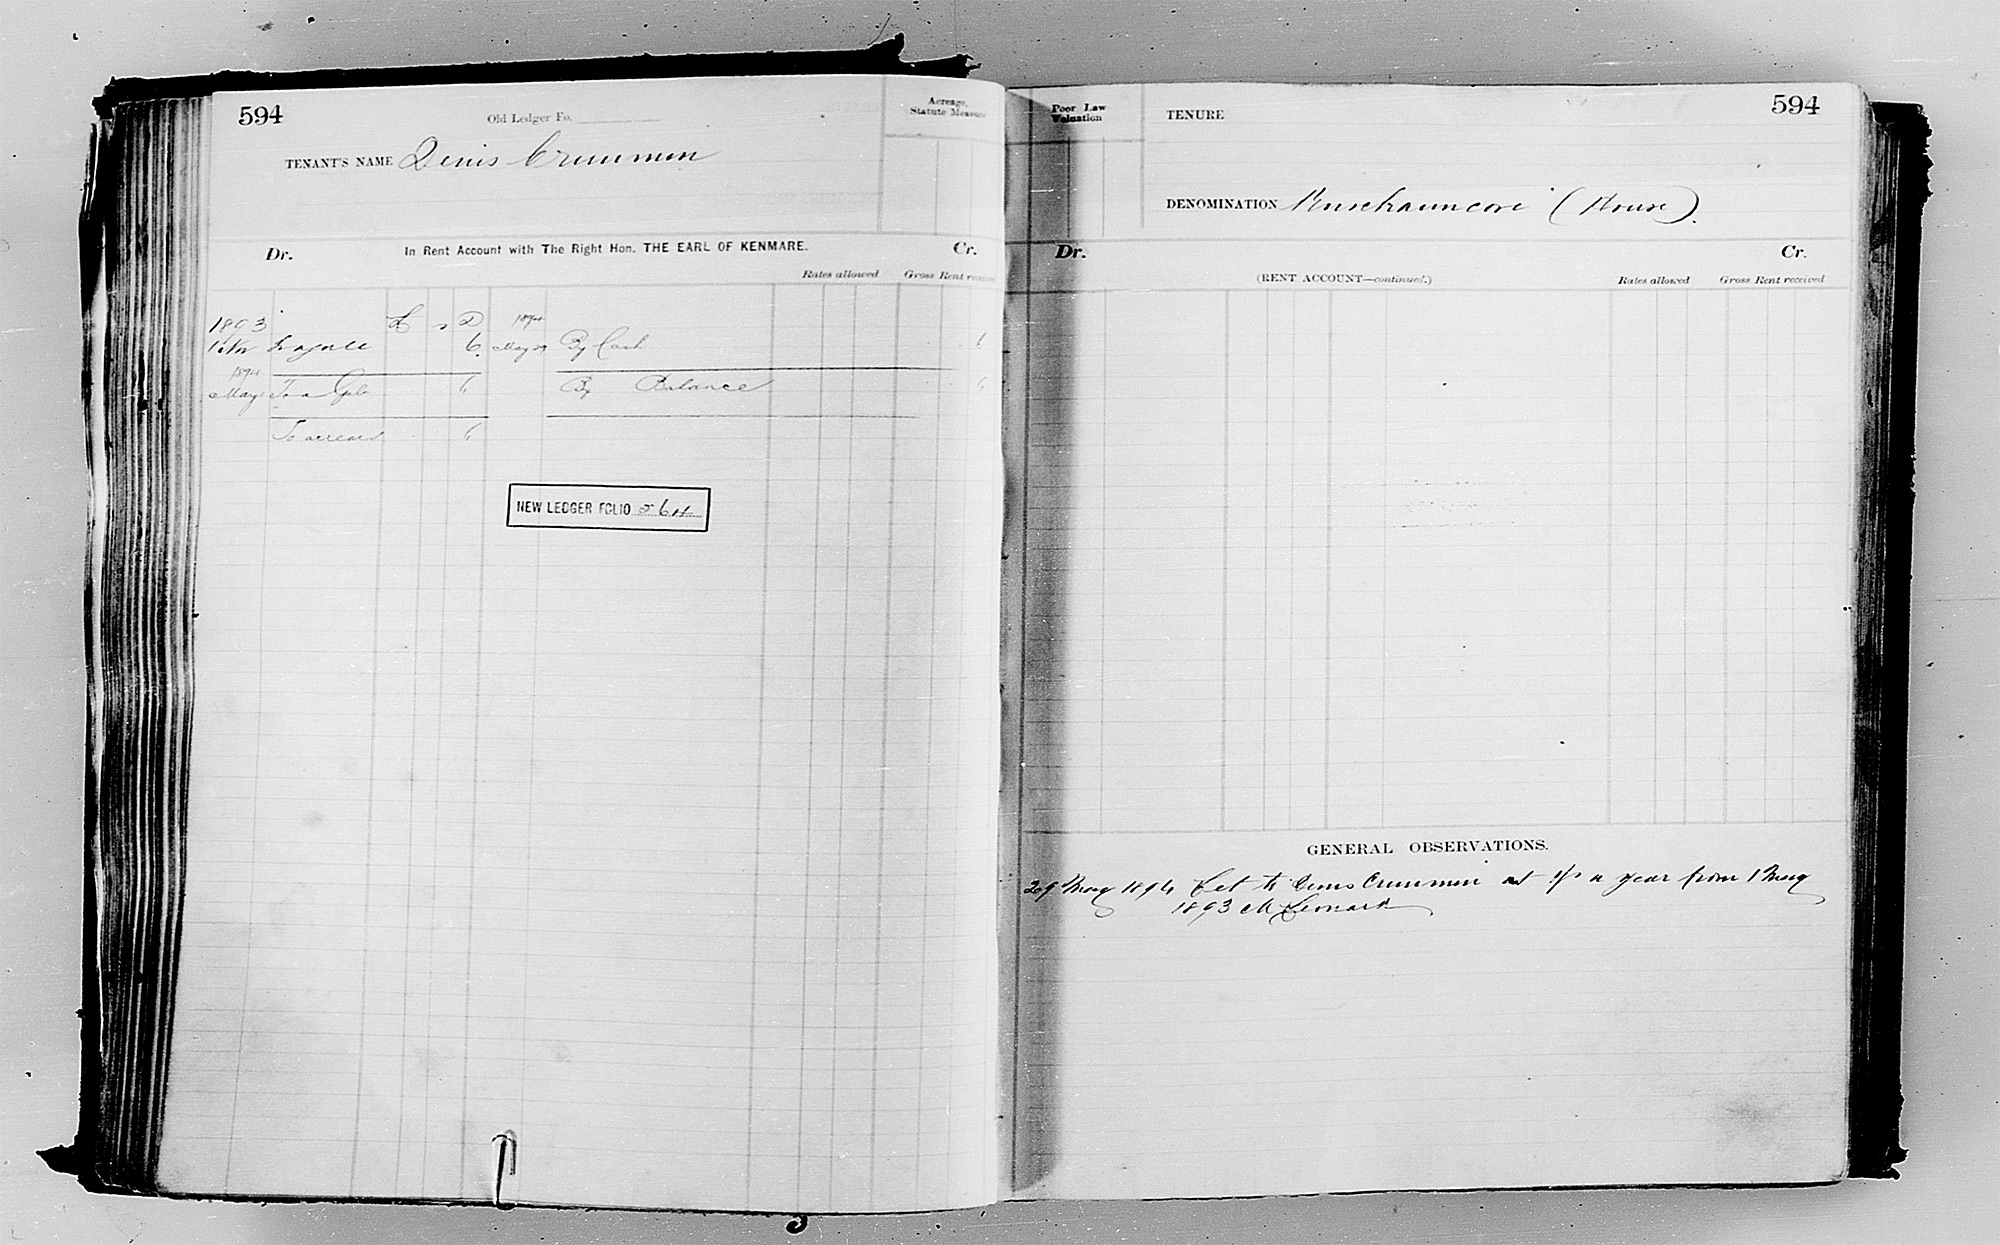 594
Old Ledger Fo.
Acreage, Statute Measure
TENANT'S NAME Denis Crimmin
Dr. In Rent Account with The Right Hon. THE EARL OF KENMARE. Cr.
Rates allowed Gross Rent received
1893 £ s D 1894
6 May 29 By Cash 6
1894
May To a Gale 6 By Balance 6
To arrears 6
NEW LEDGER FOLIO 564
Poor Law Valuation
TENURE
594
DENOMINATION (House).
Dr. Cr.
(RENT ACCOUNT—continued.) Rates allowed Gross Rent received
GENERAL OBSERVATIONS.
29 May 1894 Let to Denis Crimmin at 1/- a year from 1 May
1893 M Leonard